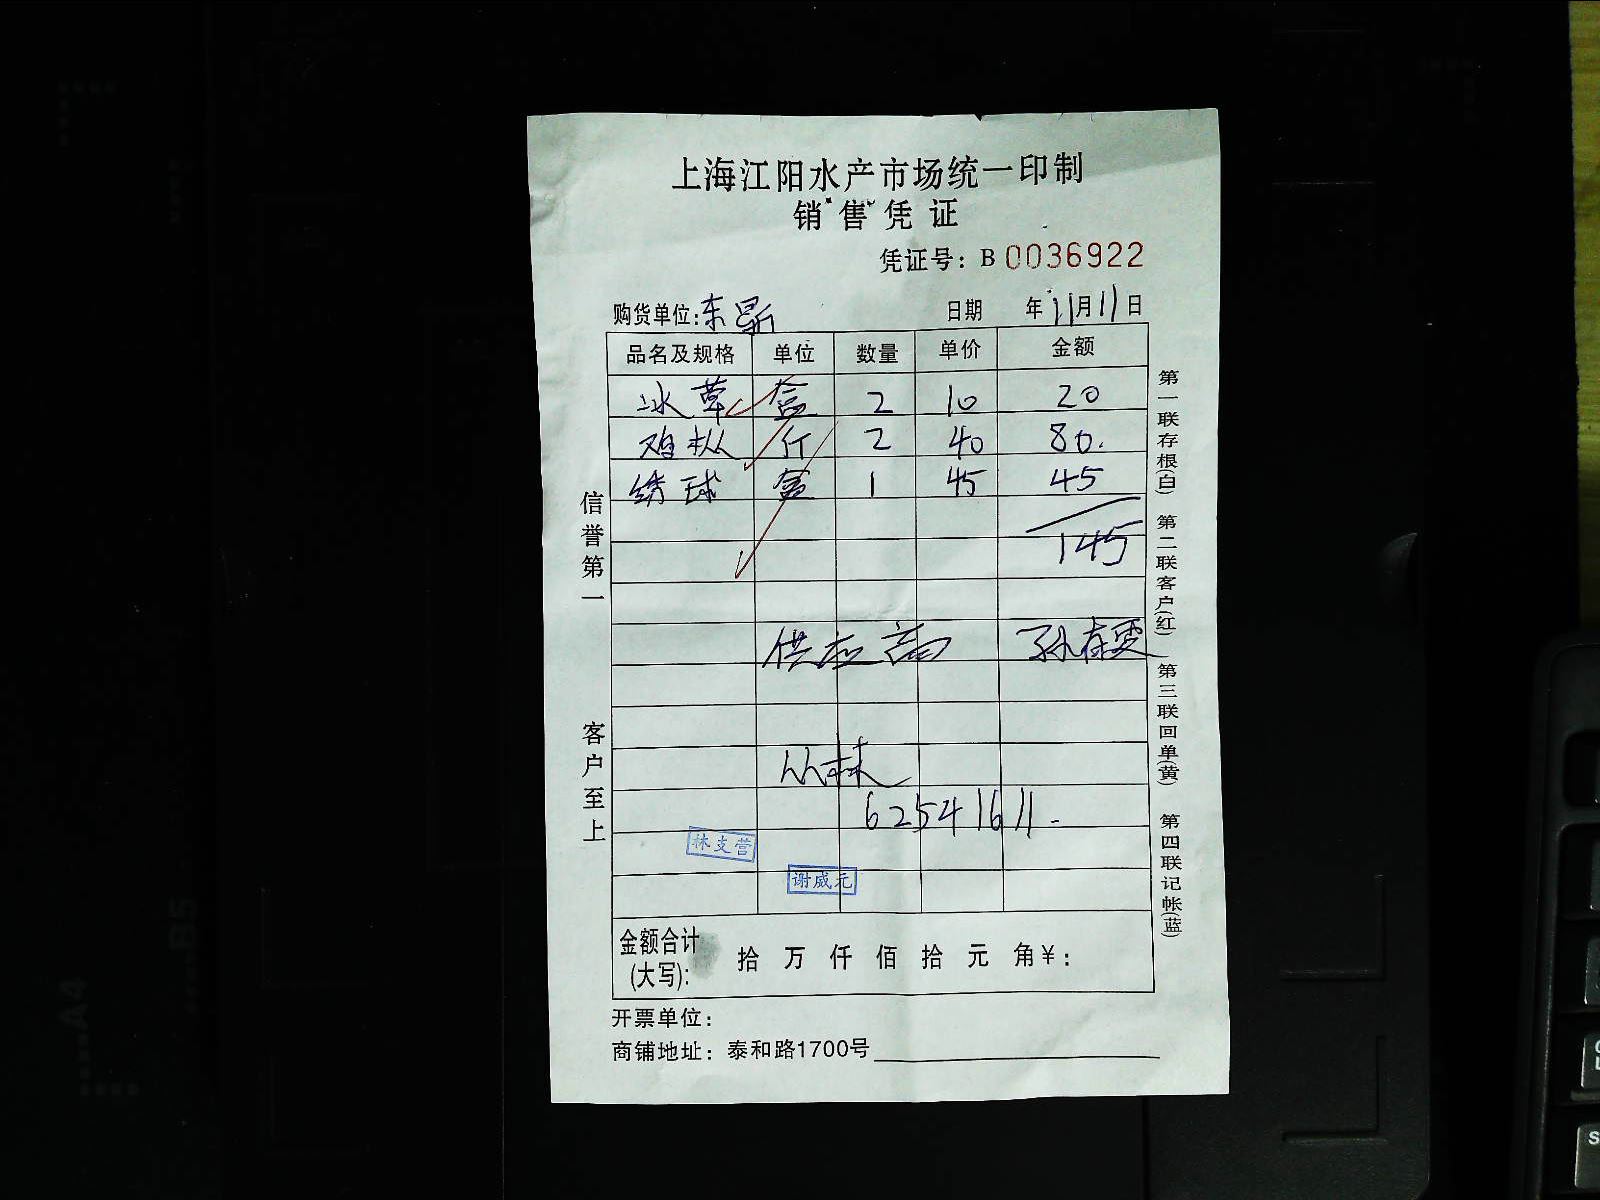 上海江阳水产市场统一印制
销售凭证
凭证号：B 0036922
购货单位：东 日期 年11月11日
品名及规格 单位 数量 单价 金额
冰草 盒 2 10 20
鸡枞 斤 2 40 80.
绣球 盒 1 45 45
145
供应商 孙
丛林
62541611.
林支营
谢威元
金额合计(大写)： 拾 万 仟 佰 拾 元 角￥：
开票单位：
商铺地址：泰和路1700号
信誉第一 客户至上
第一联存根(白) 第二联客户(红) 第三联回单(黄) 第四联记帐(蓝)
A4
B5